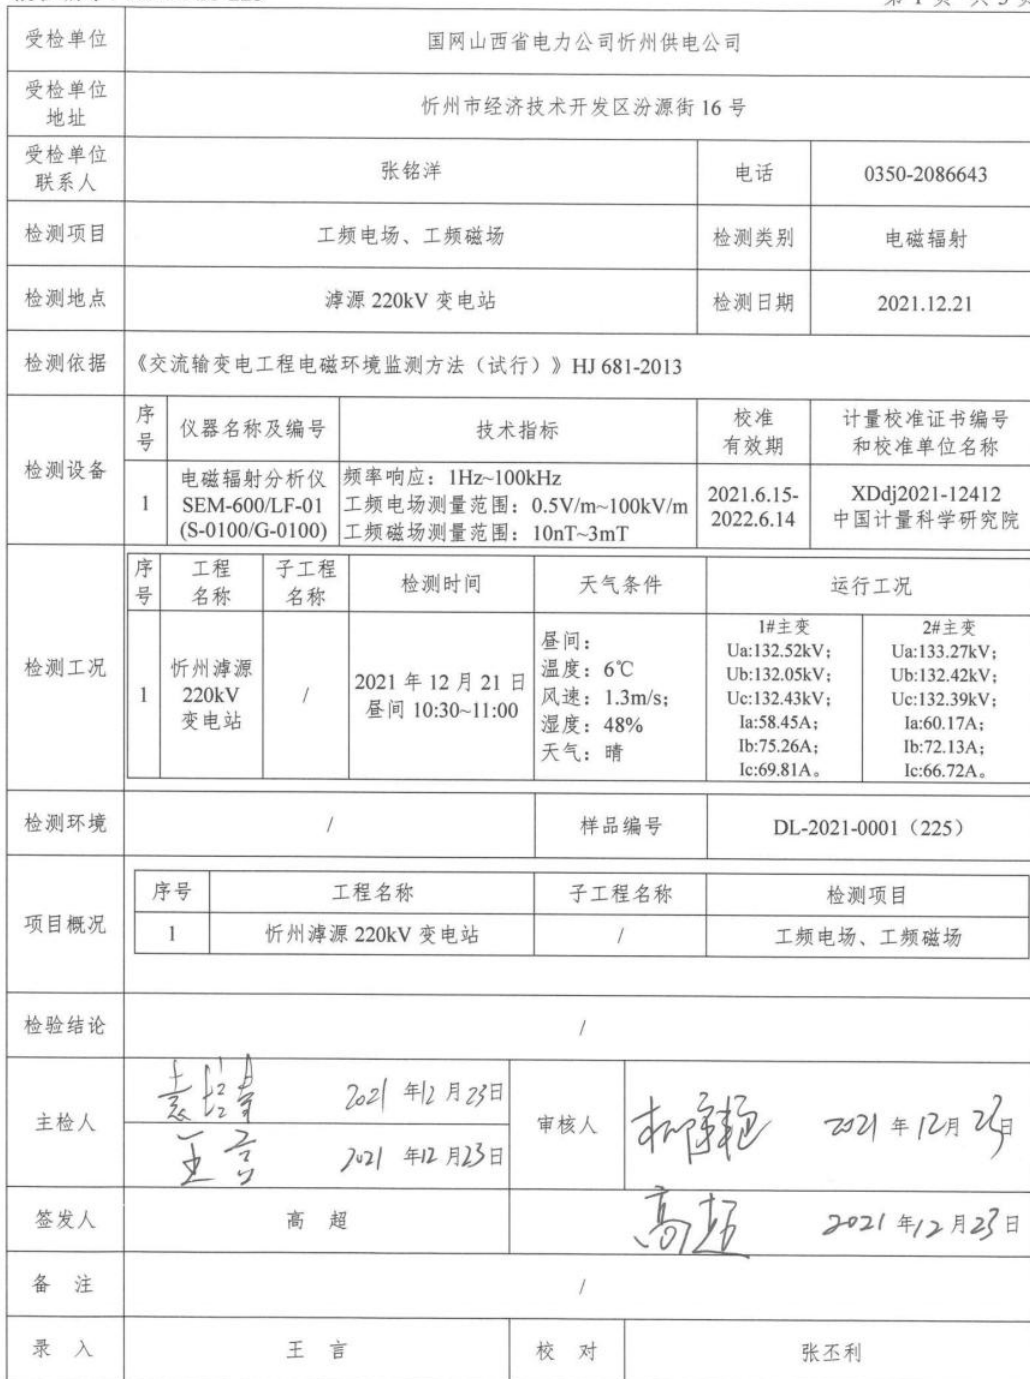 第 1 页 共 3 页
受检单位 国网山西省电力公司忻州供电公司
受检单位
地址
忻州市经济技术开发区汾源街 16 号
受检单位
联系人
张铭洋 电话 0350-2086643
检测项目 工频电场、工频磁场 检测类别 电磁辐射
检测地点 滹源 220kV 变电站 检测日期 2021.12.21
检测依据 《交流输变电工程电磁环境监测方法（试行）》HJ 681-2013
检测设备
序
号
仪器名称及编号 技术指标
校准
有效期
计量校准证书编号
和校准单位名称
1
电磁辐射分析仪
SEM-600/LF-01
(S-0100/G-0100)
频率响应：1Hz~100kHz
工频电场测量范围：0.5V/m~100kV/m
工频磁场测量范围：10nT~3mT
2021.6.15-
2022.6.14
XDdj2021-12412
中国计量科学研究院
检测工况
序
号
工程
名称
子工程
名称
检测时间 天气条件 运行工况
1
忻州滹源
220kV
变电站
/
2021 年 12 月 21 日
昼间 10:30~11:00
昼间：
温度：6℃
风速：1.3m/s;
湿度：48%
天气：晴
1#主变
Ua:132.52kV;
Ub:132.05kV;
Uc:132.43kV;
Ia:58.45A;
Ib:75.26A;
Ic:69.81A。
2#主变
Ua:133.27kV;
Ub:132.42kV;
Uc:132.39kV;
Ia:60.17A;
Ib:72.13A;
Ic:66.72A。
检测环境 / 样品编号 DL-2021-0001（225）
项目概况
序号 工程名称 子工程名称 检测项目
1 忻州滹源 220kV 变电站 / 工频电场、工频磁场
检验结论 /
主检人
2021 年12 月 23日
王言 2021 年12 月23日
审核人 2021 年 12月 23日
签发人 高 超 高超 2021 年12 月23 日
备 注 /
录 入 王 言 校 对 张丕利